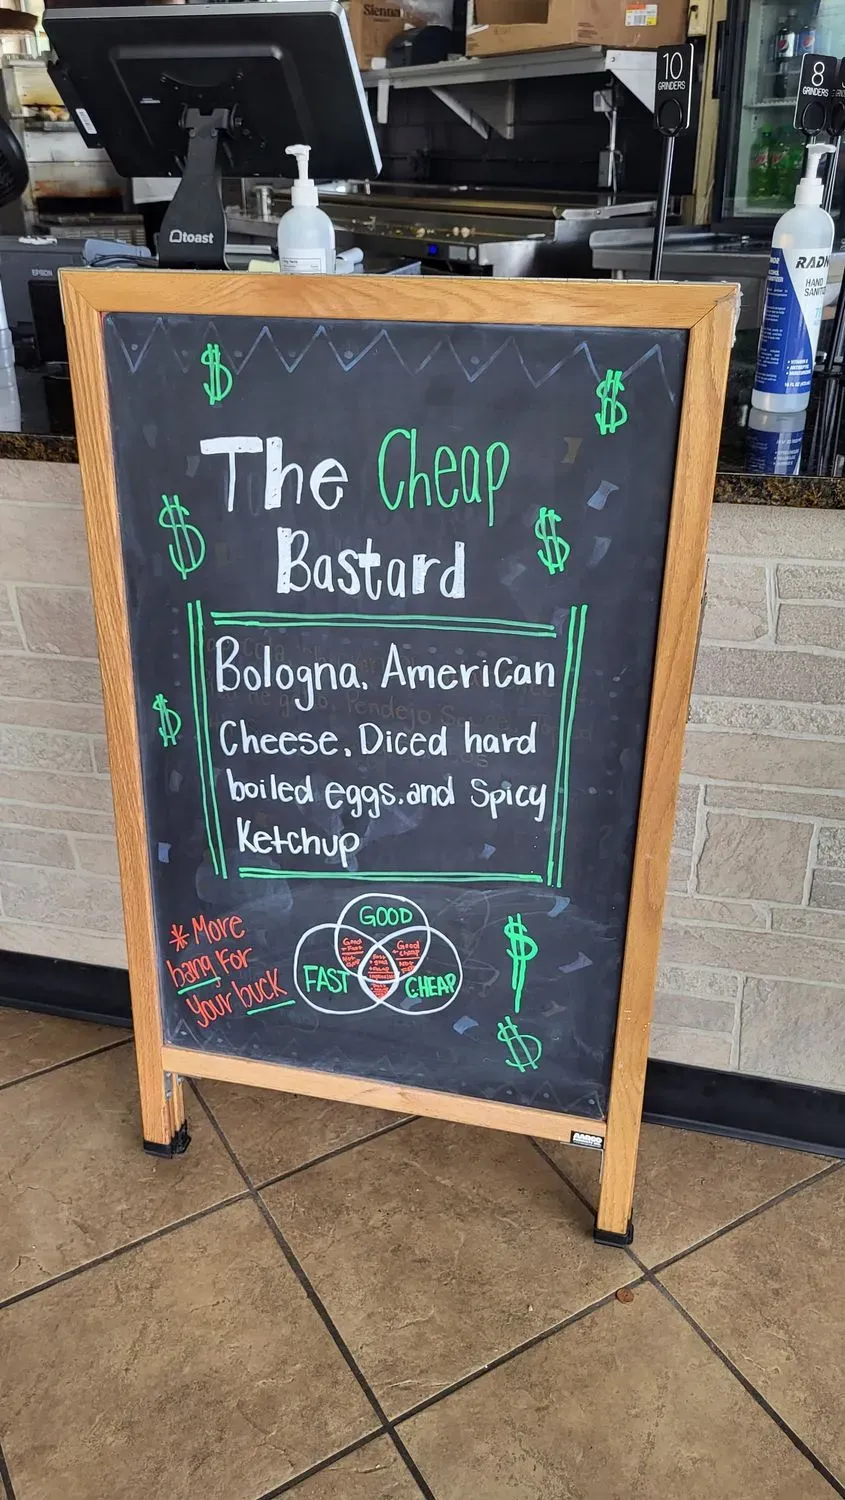 Sienna
10
GRINDERS
8
GRINDERS
toast
EPSON
RADN
HAND
SANITI
The Cheap
Bastard
Bologna, American
Cheese, Diced hard
boiled eggs, and Spicy
Ketchup
* More
bang for
your buck
GOOD
Good
Good
Cheap
FAST
CHEAP